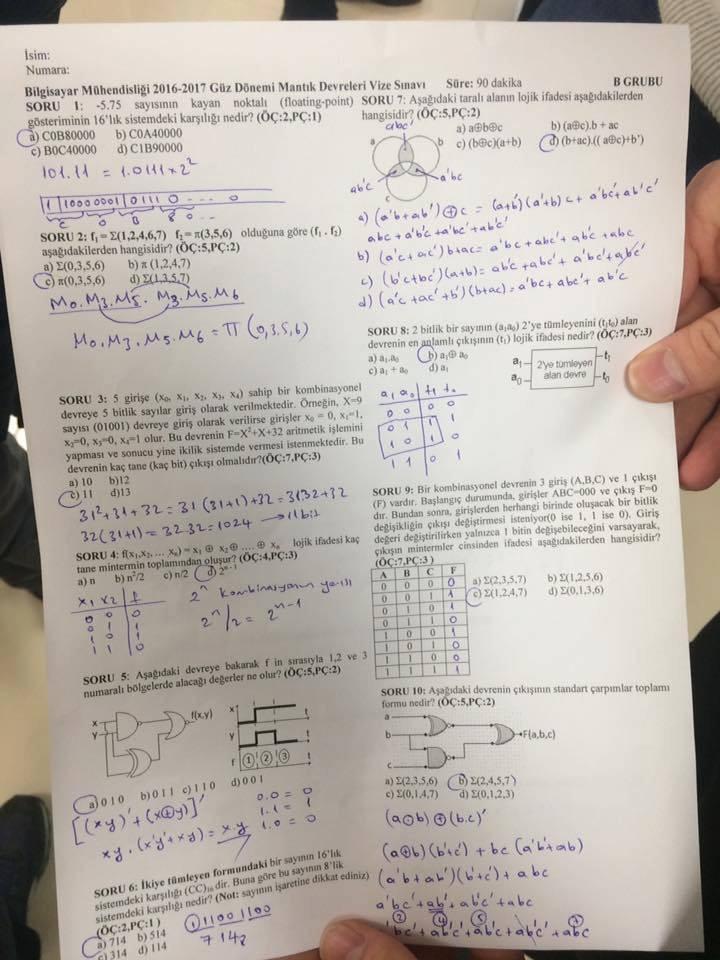 İsim:
Numara:
Bilgisayar Mühendisliği 2016-2017 Güz Dönemi Mantık Devreleri Vize Sınavı Süre: 90 dakika B GRUBU
SORU 1: -5.75 sayısının kayan noktalı (floating-point)
gösteriminin 16'lık sistemdeki karşılığı nedir? (ÖÇ:2,PÇ:1)
a) C0B80000 b) C0A40000
c) B0C40000 d) C1B90000
101.11 = 1.0111 x 2²
1 10000001 0111 0 - - - 0
C 0 B 8 0...
SORU 2: f₁= Σ(1,2,4,6,7) f₂= π(3,5,6) olduğuna göre (f₁ . f₂)
aşağıdakilerden hangisidir? (ÖÇ:5,PÇ:2)
a) Σ(0,3,5,6) b) π (1,2,4,7)
c) π(0,3,5,6) d) Σ(1,3,5,7)
M0.M3.M5. M3.M5.M6
M0.M3.M5.M6 = Π (0,3,5,6)
SORU 3: 5 girişe (x₀, x₁, x₂, x₃, x₄) sahip bir kombinasyonel
devreye 5 bitlik sayılar giriş olarak verilmektedir. Örneğin, X=9
sayısı (01001) devreye giriş olarak verilirse girişler x₀ = 0, x₁=1,
x₂=0, x₃=0, x₄=1 olur. Bu devrenin F=X²+X+32 aritmetik işlemini
yapması ve sonucu yine ikilik sistemde vermesi istenmektedir. Bu
devrenin kaç tane (kaç bit) çıkışı olmalıdır?(ÖÇ:7,PÇ:3)
a) 10 b)12
c) 11 d)13
31²+31+32 = 31(31+1)+32 = 31.32+32
32(31+1) = 32.32 = 1024 → 11 bit
SORU 4: f(x₁,x₂,... xₙ) = x₁ ⊕ x₂⊕ .... ⊕ xₙ lojik ifadesi kaç
tane mintermin toplamından oluşur? (ÖÇ:4,PÇ:3)
a) n b) n²/2 c) n/2 d) 2ⁿ⁻¹
x1 x2 f
0 0 0
0 1 1
1 0 1
1 1 0
2ⁿ kombinasyonun yarısı
2ⁿ/2 = 2ⁿ⁻¹
SORU 5: Aşağıdaki devreye bakarak f in sırasıyla 1,2 ve 3
numaralı bölgelerde alacağı değerler ne olur? (ÖÇ:5,PÇ:2)
x
y
f(x,y)
x
t
y
t
f ① ② ③ t
a) 0 1 0 b) 0 1 1 c) 1 1 0 d) 0 0 1
[(xy)' + (x⊕y)]'
xy.(x'y'+xy) = x.y
0.0 = 0
1.1 = 1
1.0 = 0
SORU 6: İkiye tümleyen formundaki bir sayının 16'lık
sistemdeki karşılığı (CC)₁₆ dir. Buna göre bu sayının 8'lik
sistemdeki karşılığı nedir? (Not: sayının işaretine dikkat ediniz)
(ÖÇ:2,PÇ:1 )
a) 714 b) 514
c) 314 d) 114
① 11001100
7 1 4₈
SORU 7: Aşağıdaki taralı alanın lojik ifadesi aşağıdakilerden
hangisidir? (ÖÇ:5,PÇ:2)
abc'
a
b
c
ab'c
a'bc
a) a⊕b⊕c b) (a⊕c).b + ac
c) (b⊕c)(a+b) d) (b+ac).(( a⊕c)+b')
a) (a'b+ab')⊕c = (a+b')(a'+b)c + a'bc'+ab'c'
abc + a'b'c + a'bc' + ab'c'
b) (a'c+ac')b+ac = a'bc + abc' + ab'c + abc
c) (b'c+bc')(a+b) = ab'c + abc' + a'bc' + abc'
d) (a'c+ac'+b')(b+ac) = a'bc + abc' + ab'c
SORU 8: 2 bitlik bir sayının (a₁a₀) 2'ye tümleyenini (t₁t₀) alan
devrenin en anlamlı çıkışının (t₁) lojik ifadesi nedir? (ÖÇ:7,PÇ:3)
a) a₁.a₀ b) a₁⊕ a₀
c) a₁ + a₀ d) a₁
a₁
a₀
2'ye tümleyen
alan devre
t₁
t₀
a1 a0 t1 t0
0 0 0 0
0 1 1 1
1 0 1 0
1 1 0 1
SORU 9: Bir kombinasyonel devrenin 3 giriş (A,B,C) ve 1 çıkışı
(F) vardır. Başlangıç durumunda, girişler ABC=000 ve çıkış F=0
dır. Bundan sonra, girişlerden herhangi birinde oluşacak bir bitlik
değişikliğin çıkışı değiştirmesi isteniyor(0 ise 1, 1 ise 0). Giriş
değeri değiştirilirken yalnızca 1 bitin değişebileceğini varsayarak,
çıkışın mintermler cinsinden ifadesi aşağıdakilerden hangisidir?
(ÖÇ:7,PÇ:3 )
A B C F
0 0 0 0
0 0 1 1
0 1 0 1
0 1 1 0
1 0 0 1
1 0 1 0
1 1 0 0
1 1 1 1
a) Σ(2,3,5,7) b) Σ(1,2,5,6)
c) Σ(1,2,4,7) d) Σ(0,1,3,6)
SORU 10: Aşağıdaki devrenin çıkışının standart çarpımlar toplamı
formu nedir? (ÖÇ:5,PÇ:2)
a
b
c
F(a,b,c)
a) Σ(2,3,5,6) b) Σ(2,4,5,7)
c) Σ(0,1,4,7) d) Σ(0,1,2,3)
(a⊙b) ⊕ (b.c)'
(a⊕b)(b'+c') + bc (a'b'+ab)
(a'b+ab')(b'+c') + abc
a'bc' + ab' + ab'c' + abc
a'bc' + ab'c' + ab'c + ab'c' + abc
② ④ ⑤ ⑦